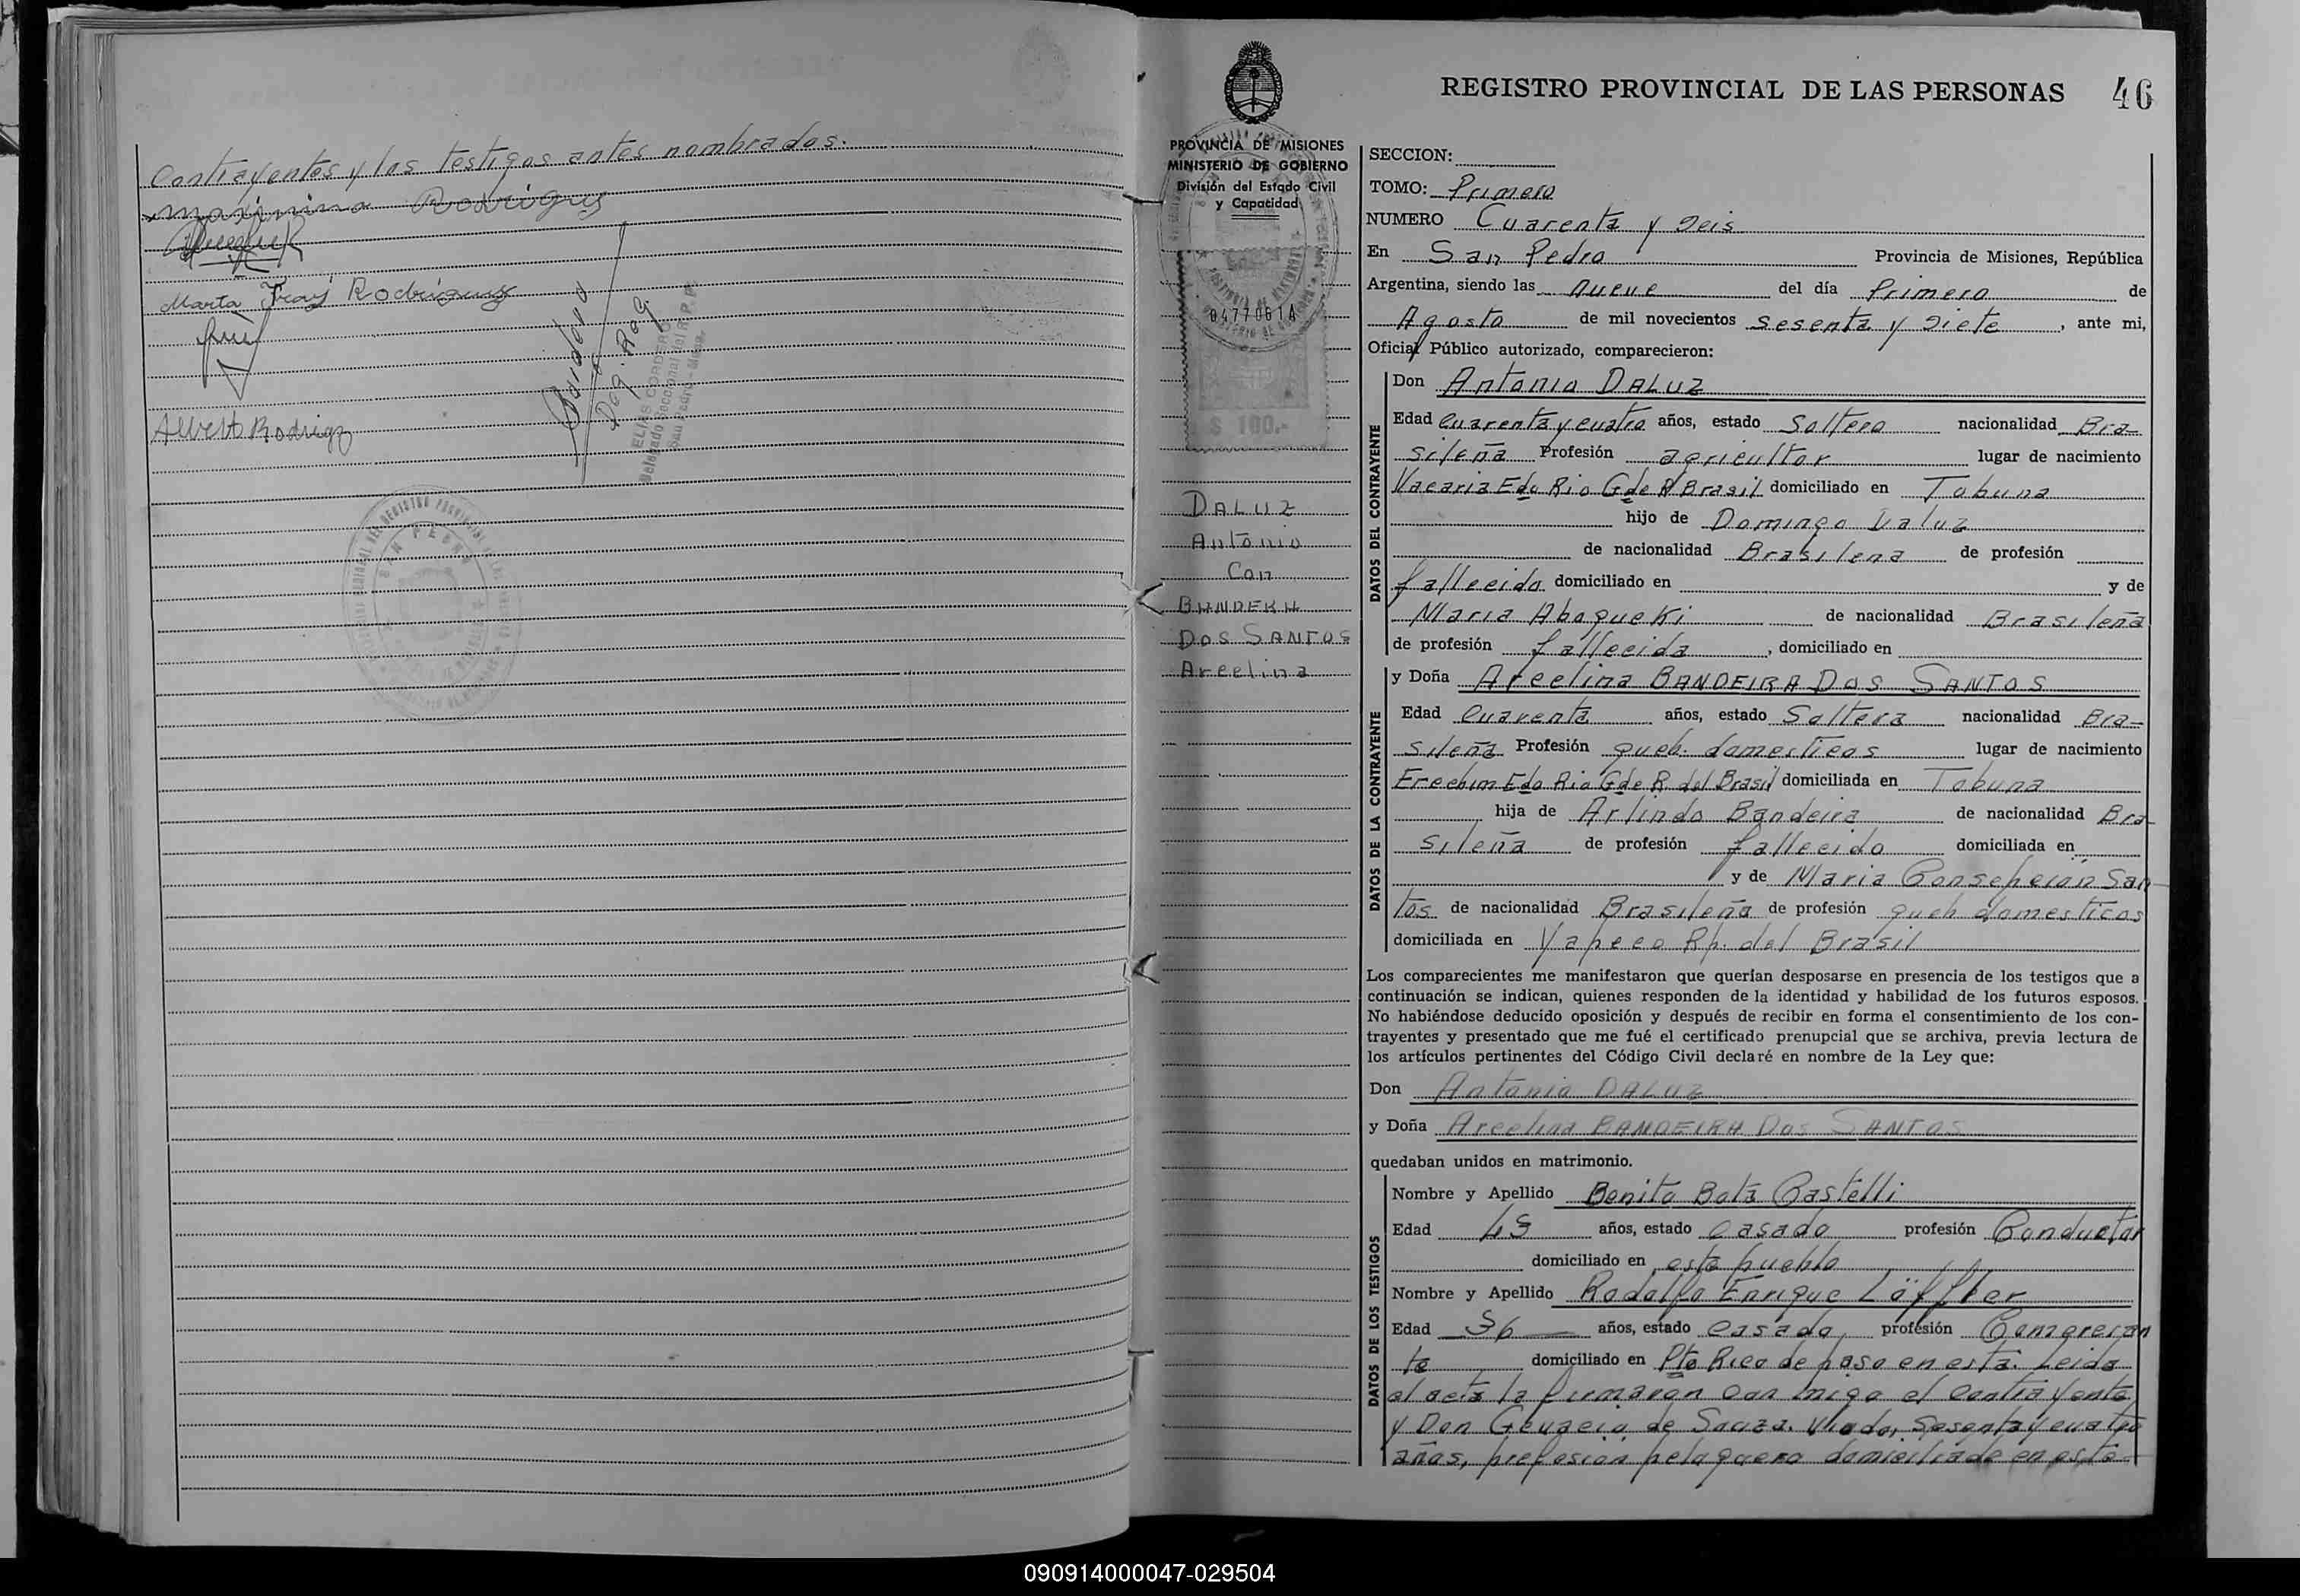 Contrayentes y los testigos antes nombrados.
Maximina Rodrigues
Marta Rodriguez
Albert Rodrigz
Deg. Reg.
ELIS CORDERO
Delegado Seccional del R.P.P.
San Pedro - Mnes.
SAN PEDRO
REGISTRO PROVINCIAL DE LAS PERSONAS 46
PROVINCIA DE MISIONES
MINISTERIO DE GOBIERNO
División del Estado Civil
y Capacidad
0477061A
$ 100.-
DALUZ
Antonio
Con
BANDERA
DOS SANTOS
Arcelina
SECCION:
TOMO: Primero
NUMERO Cuarenta y Seis
En San Pedro Provincia de Misiones, República
Argentina, siendo las nueve del día Primero de
Agosto de mil novecientos sesenta y siete, ante mi,
Oficial Público autorizado, comparecieron:
DATOS DEL CONTRAYENTE
Don Antonio DALUZ
Edad Cuarenta y cuatro años, estado Soltero nacionalidad Bra-
sileña Profesión agricultor lugar de nacimiento
Vacaria Edo Rio Gde R Brasil domiciliado en Tobuna
hijo de Domingo Daluz
de nacionalidad Brasilena de profesión
fallecido domiciliado en y de
Maria Aboqueki de nacionalidad Brasileña
de profesión fallecida, domiciliado en
DATOS DE LA CONTRAYENTE
y Doña Arcelina BANDEIRA DOS SANTOS
Edad Cuarenta años, estado Soltera nacionalidad Bra-
sileña Profesión queh. domesticos lugar de nacimiento
Erechim Edo Rio Gde R. del Brasil domiciliada en Tobuna
hija de Arlindo Bandeira de nacionalidad Bra-
sileña de profesión fallecido domiciliada en
y de Maria Consepcion San-
tos de nacionalidad Brasileña de profesión queh domesticos
domiciliada en Yapeco Rp. del Brasil
Los comparecientes me manifestaron que querían desposarse en presencia de los testigos que a
continuación se indican, quienes responden de la identidad y habilidad de los futuros esposos.
No habiéndose deducido oposición y después de recibir en forma el consentimiento de los con-
trayentes y presentado que me fué el certificado prenupcial que se archiva, previa lectura de
los artículos pertinentes del Código Civil declaré en nombre de la Ley que:
Don Antonio DALUZ
y Doña Arcelina BANDEIRA DOS SANTOS
quedaban unidos en matrimonio.
DATOS DE LOS TESTIGOS
Nombre y Apellido Benito Botá Castelli
Edad 43 años, estado casado profesión Conductor
domiciliado en este pueblo
Nombre y Apellido Rodolfo Enrique Löffler
Edad 36 años, estado casado, profesión Comercian
te domiciliado en Pto Rico de paso en esta. Leida
el acta la firmaron con migo el contrayente
y Don Gervacio de Souza. Viudo, Sesenta y cuatro
años, profesion peluquero domiciliado en este
090914000047-029504